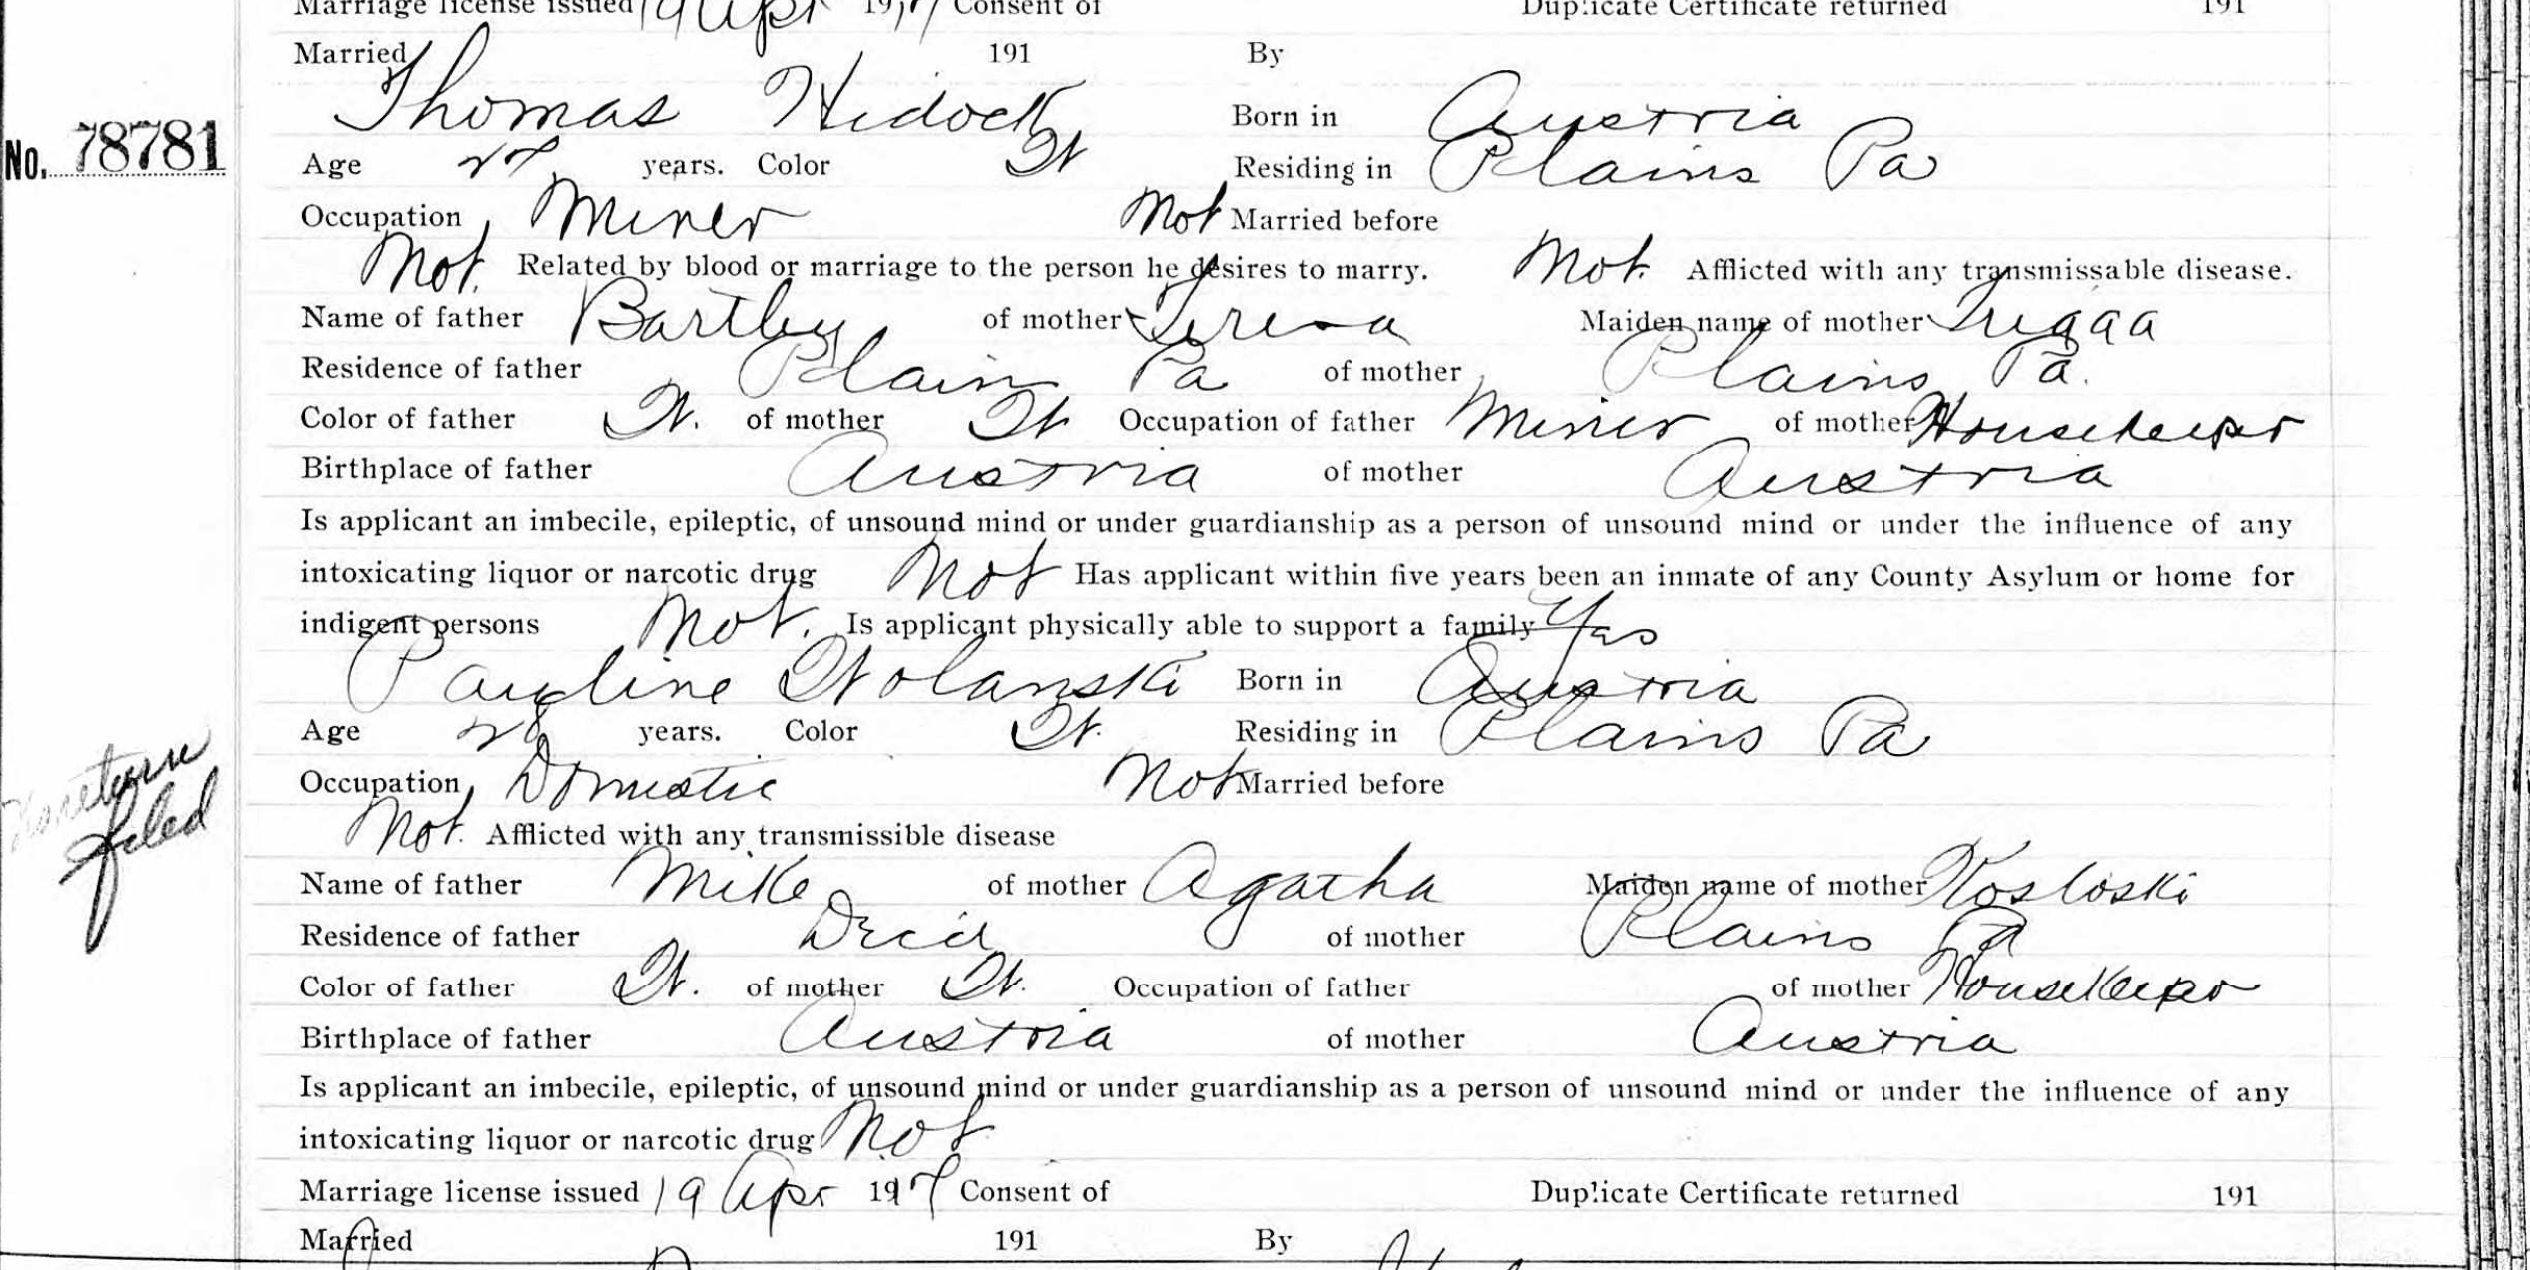 Marriage license issued 19 Apr 1917 Consent of Duplicate Certificate returned 191
Married 191 By
No. 78781
Thomas Hidock Born in Austria
Age 27 years. Color W Residing in Plains Pa
Occupation Miner Not Married before
Not. Related by blood or marriage to the person he desires to marry. Not. Afflicted with any transmissable disease.
Name of father Bartley of mother Teresa Maiden name of mother
Residence of father Plains Pa of mother Plains Pa.
Color of father W. of mother W Occupation of father Miner of mother Housekeeper
Birthplace of father Austria of mother Austria
Is applicant an imbecile, epileptic, of unsound mind or under guardianship as a person of unsound mind or under the influence of any
intoxicating liquor or narcotic drug Not Has applicant within five years been an inmate of any County Asylum or home for
indigent persons Not. Is applicant physically able to support a family Yes
Pauline Wolanski Born in Austria
Age 28 years. Color W. Residing in Plains Pa
Occupation Domestic Not Married before
filed
Not. Afflicted with any transmissible disease
Name of father Mike of mother Agatha Maiden name of mother Kosloski
Residence of father Dec'd of mother Plains Pa
Color of father W. of mother W. Occupation of father of mother Housekeeper
Birthplace of father Austria of mother Austria
Is applicant an imbecile, epileptic, of unsound mind or under guardianship as a person of unsound mind or under the influence of any
intoxicating liquor or narcotic drug Not
Marriage license issued 19 Apr 1917 Consent of Duplicate Certificate returned 191
Married 191 By